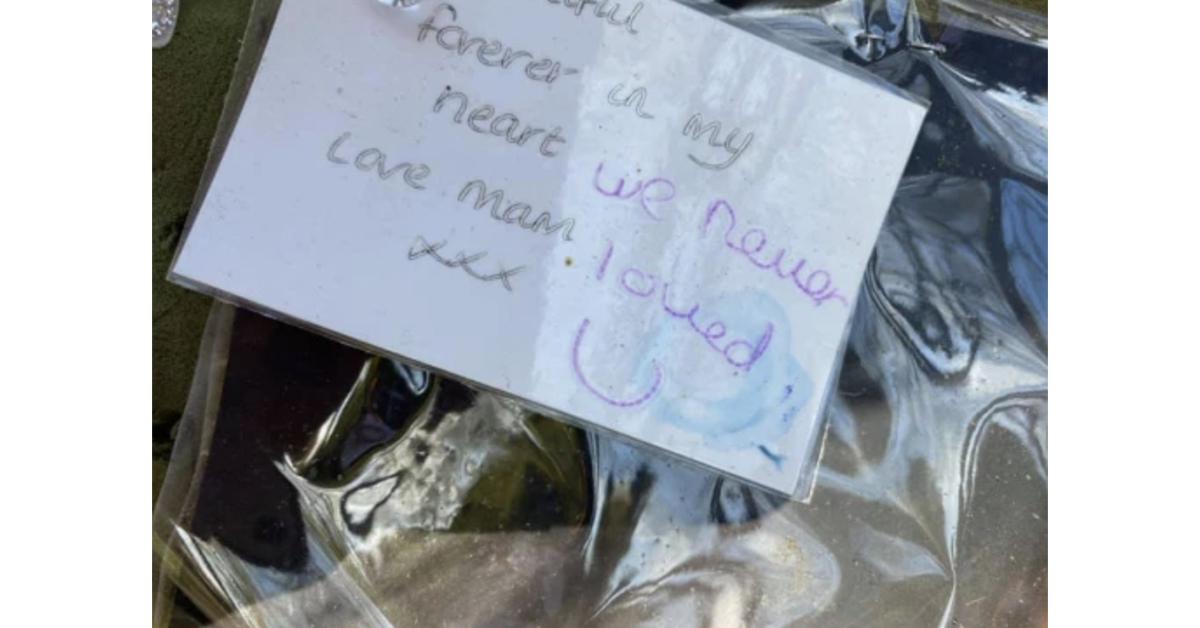 forever in my
heart
Love mam
xxx
we never
loved
U !